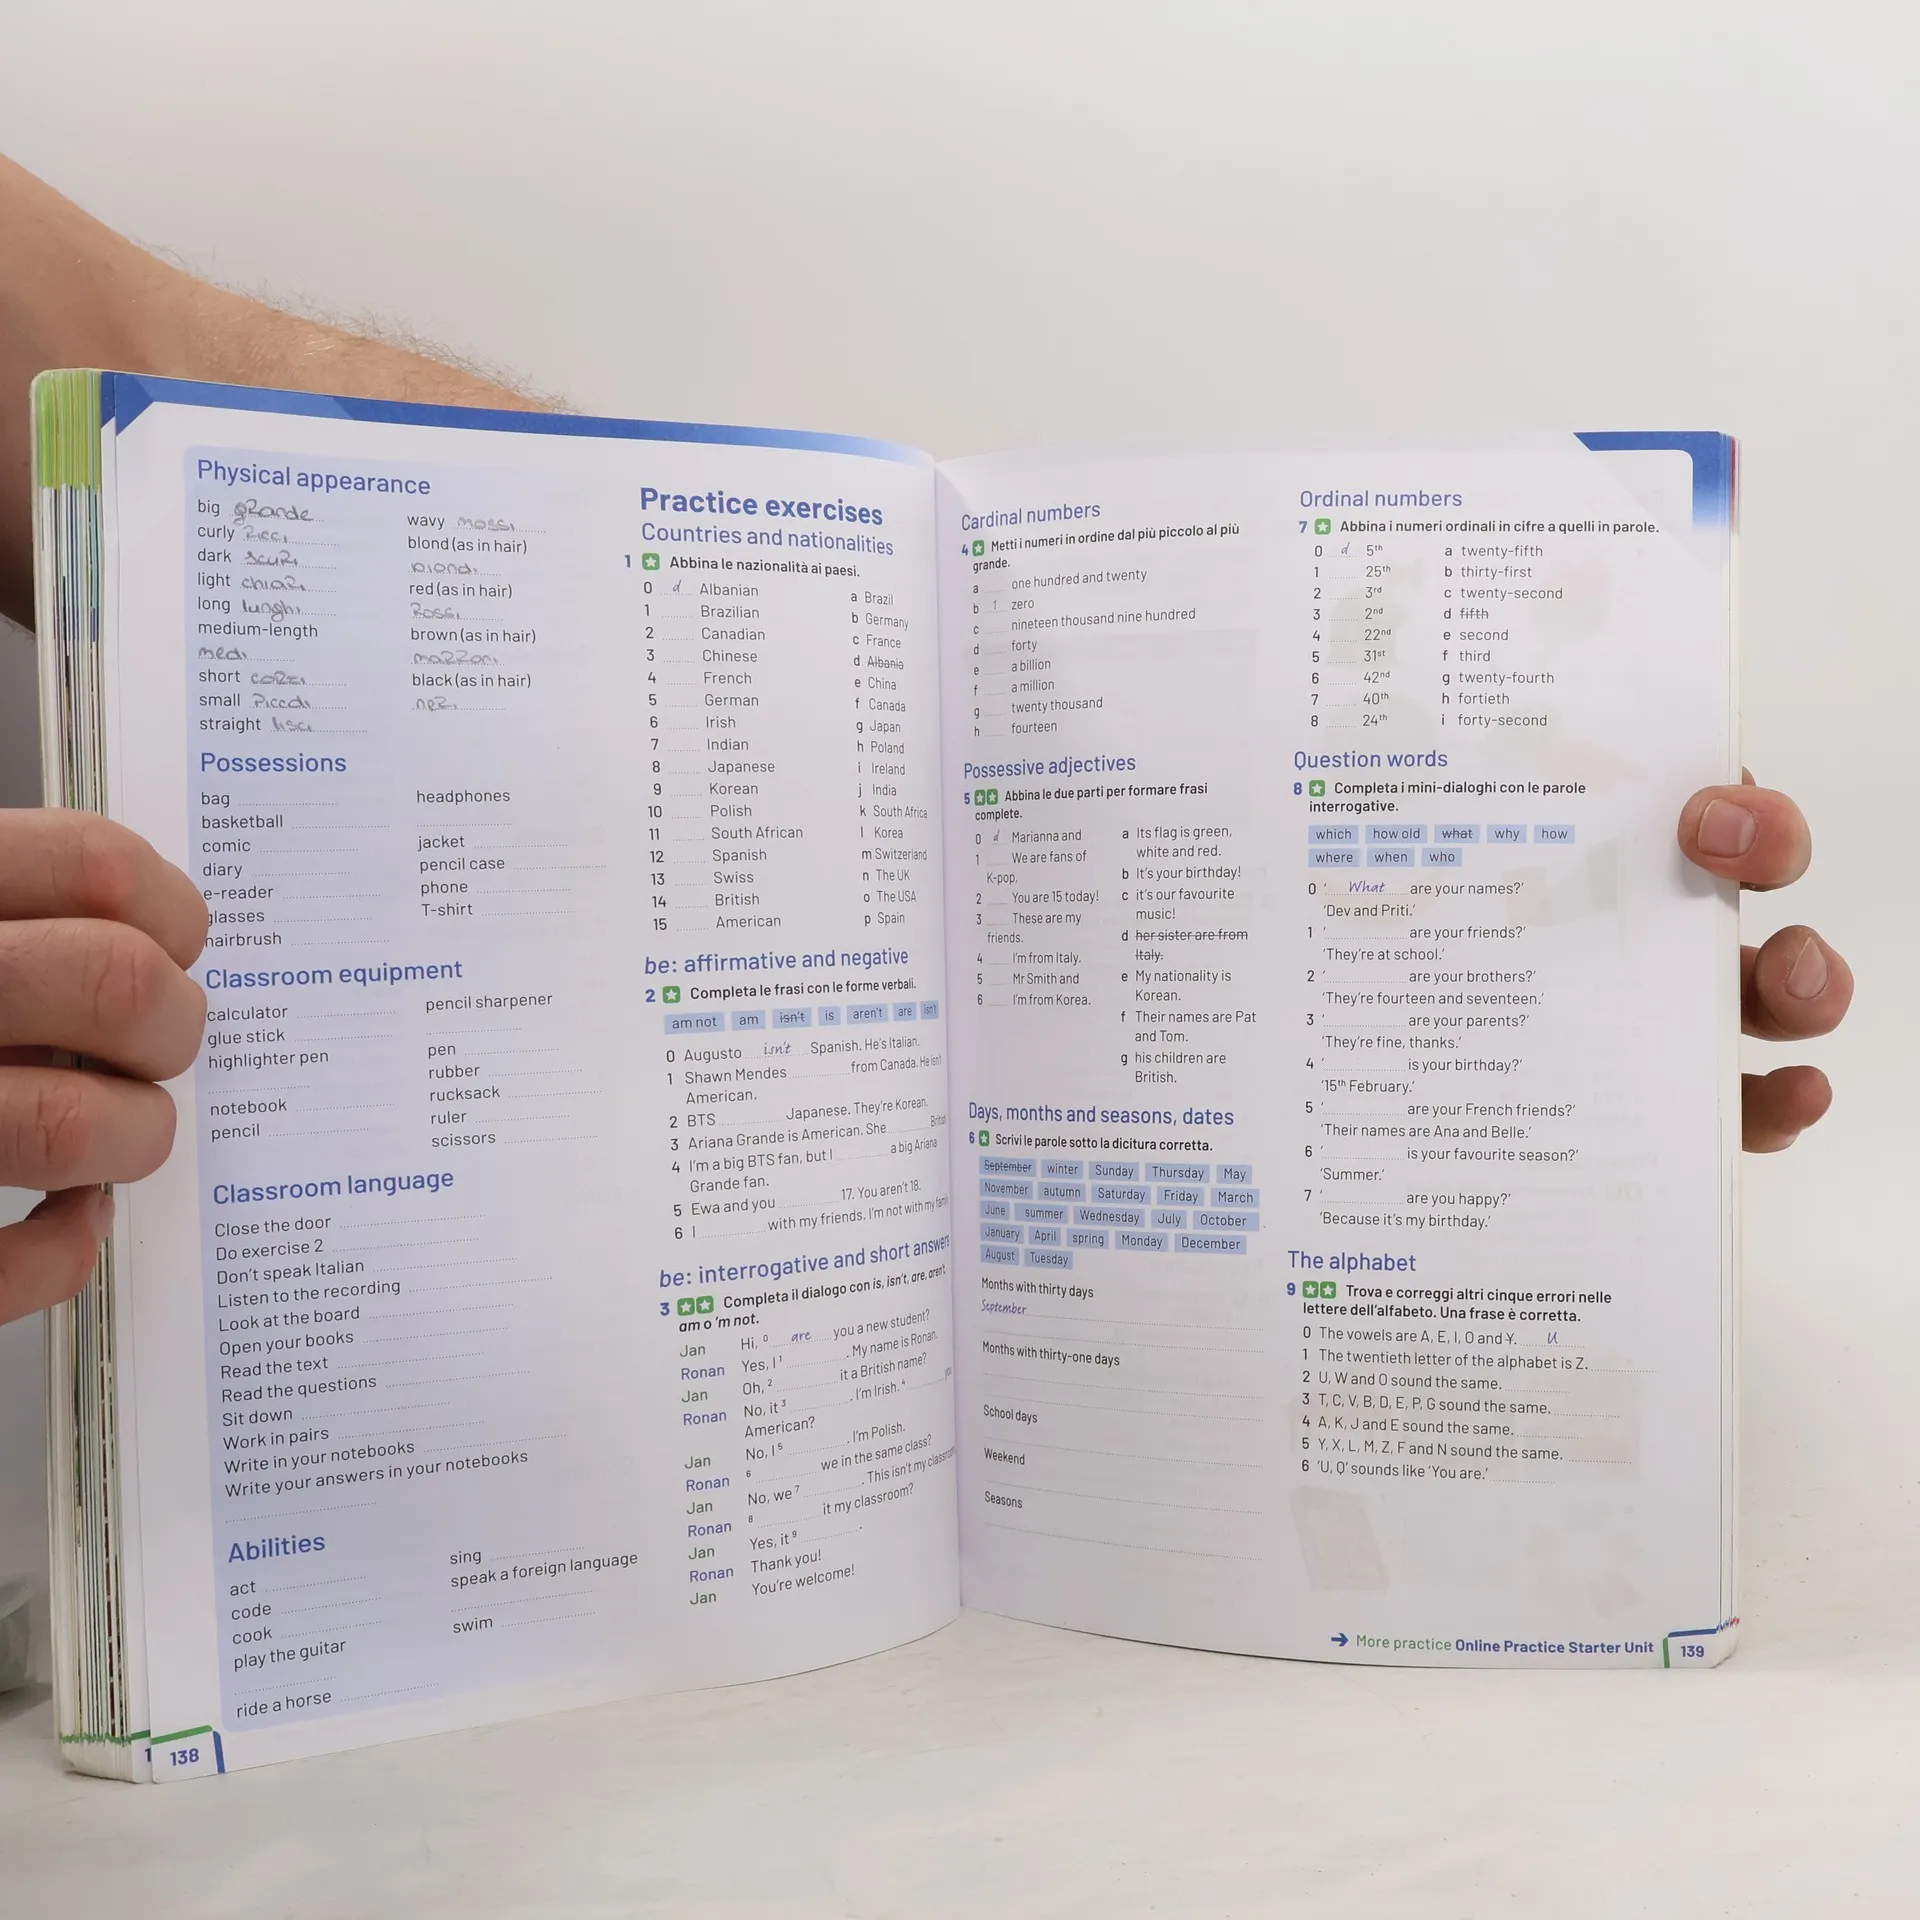 Physical appearance
big grande
curly ricci
dark scuri
light chiari
long lunghi
medium-length
medi
short corti
small piccoli
straight lisci
wavy mossi
blond (as in hair)
biondi
red (as in hair)
rossi
brown (as in hair)
marroni
black (as in hair)
neri
Possessions
bag
basketball
comic
diary
e-reader
glasses
hairbrush
headphones
jacket
pencil case
phone
T-shirt
Classroom equipment
calculator
glue stick
highlighter pen
notebook
pencil
pencil sharpener
pen
rubber
rucksack
ruler
scissors
Classroom language
Close the door
Do exercise 2
Don't speak Italian
Listen to the recording
Look at the board
Open your books
Read the text
Read the questions
Sit down
Work in pairs
Write in your notebooks
Write your answers in your notebooks
Abilities
act
code
cook
play the guitar
ride a horse
sing
speak a foreign language
swim
1
138
Practice exercises
Countries and nationalities
1 Abbina le nazionalità ai paesi.
0 d Albanian
1 Brazilian
2 Canadian
3 Chinese
4 French
5 German
6 Irish
7 Indian
8 Japanese
9 Korean
10 Polish
11 South African
12 Spanish
13 Swiss
14 British
15 American
a Brazil
b Germany
c France
d Albania
e China
f Canada
g Japan
h Poland
i Ireland
j India
k South Africa
l Korea
m Switzerland
n The UK
o The USA
p Spain
be: affirmative and negative
2 Completa le frasi con le forme verbali.
am not am isn't is aren't are isn't
0 Augusto isn't Spanish. He's Italian.
1 Shawn Mendes from Canada. He isn't
American.
2 BTS Japanese. They're Korean.
3 Ariana Grande is American. She British
4 I'm a big BTS fan, but I a big Ariana
Grande fan.
5 Ewa and you 17. You aren't 18.
6 I with my friends. I'm not with my family
be: interrogative and short answers
3 Completa il dialogo con is, isn't, are, aren't
am o 'm not.
Jan Hi, 0 are you a new student?
Ronan Yes, I 1 . My name is Ronan.
Jan Oh, 2 it a British name?
Ronan No, it 3 . I'm Irish. 4 you
American?
Jan No, I 5 . I'm Polish.
Ronan 6 we in the same class?
Jan No, we 7 . This isn't my classroom
Ronan 8 it my classroom?
Jan Yes, it 9 .
Ronan Thank you!
Jan You're welcome!
Cardinal numbers
4 Metti i numeri in ordine dal più piccolo al più
grande.
a one hundred and twenty
b 1 zero
c nineteen thousand nine hundred
d forty
e a billion
f a million
g twenty thousand
h fourteen
Possessive adjectives
5 Abbina le due parti per formare frasi
complete.
0 d Marianna and
1 We are fans of
K-pop,
2 You are 15 today!
3 These are my
friends.
4 I'm from Italy.
5 Mr Smith and
6 I'm from Korea.
a Its flag is green,
white and red.
b It's your birthday!
c it's our favourite
music!
d her sister are from
Italy.
e My nationality is
Korean.
f Their names are Pat
and Tom.
g his children are
British.
Days, months and seasons, dates
6 Scrivi le parole sotto la dicitura corretta.
September winter Sunday Thursday May
November autumn Saturday Friday March
June summer Wednesday July October
January April spring Monday December
August Tuesday
Months with thirty days
September
Months with thirty-one days
School days
Weekend
Seasons
Ordinal numbers
7 Abbina i numeri ordinali in cifre a quelli in parole.
0 d 5th
1 25th
2 3rd
3 2nd
4 22nd
5 31st
6 42nd
7 40th
8 24th
a twenty-fifth
b thirty-first
c twenty-second
d fifth
e second
f third
g twenty-fourth
h fortieth
i forty-second
Question words
8 Completa i mini-dialoghi con le parole
interrogative.
which how old what why how
where when who
0 ' What are your names?'
'Dev and Priti.'
1 ' are your friends?'
'They're at school.'
2 ' are your brothers?'
'They're fourteen and seventeen.'
3 ' are your parents?'
'They're fine, thanks.'
4 ' is your birthday?'
'15th February.'
5 ' are your French friends?'
'Their names are Ana and Belle.'
6 ' is your favourite season?'
'Summer.'
7 ' are you happy?'
'Because it's my birthday.'
The alphabet
9 Trova e correggi altri cinque errori nelle
lettere dell'alfabeto. Una frase è corretta.
0 The vowels are A, E, I, O and Y. U
1 The twentieth letter of the alphabet is Z.
2 U, W and O sound the same.
3 T, C, V, B, D, E, P, G sound the same.
4 A, K, J and E sound the same.
5 Y, X, L, M, Z, F and N sound the same.
6 'U, Q' sounds like 'You are.'
More practice Online Practice Starter Unit
139